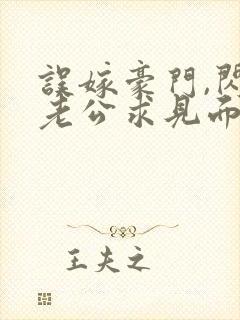 誤嫁豪門,閃
老公求見而
王夫之